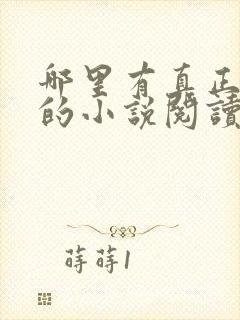 哪里有真正
的小說閱讀
蒔蒔1